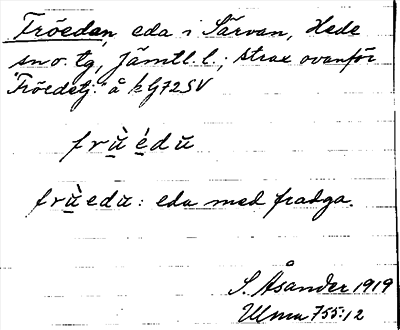 Fröedan, eda i Särvan, Hede
sn o. tg, Jämtl. l.; strax ovanför
"Fröedstj." å kG72SV
frù̱é̱du
frù̱edu: eda med fradga.
S. Åsander 1919
Ulma 755:12